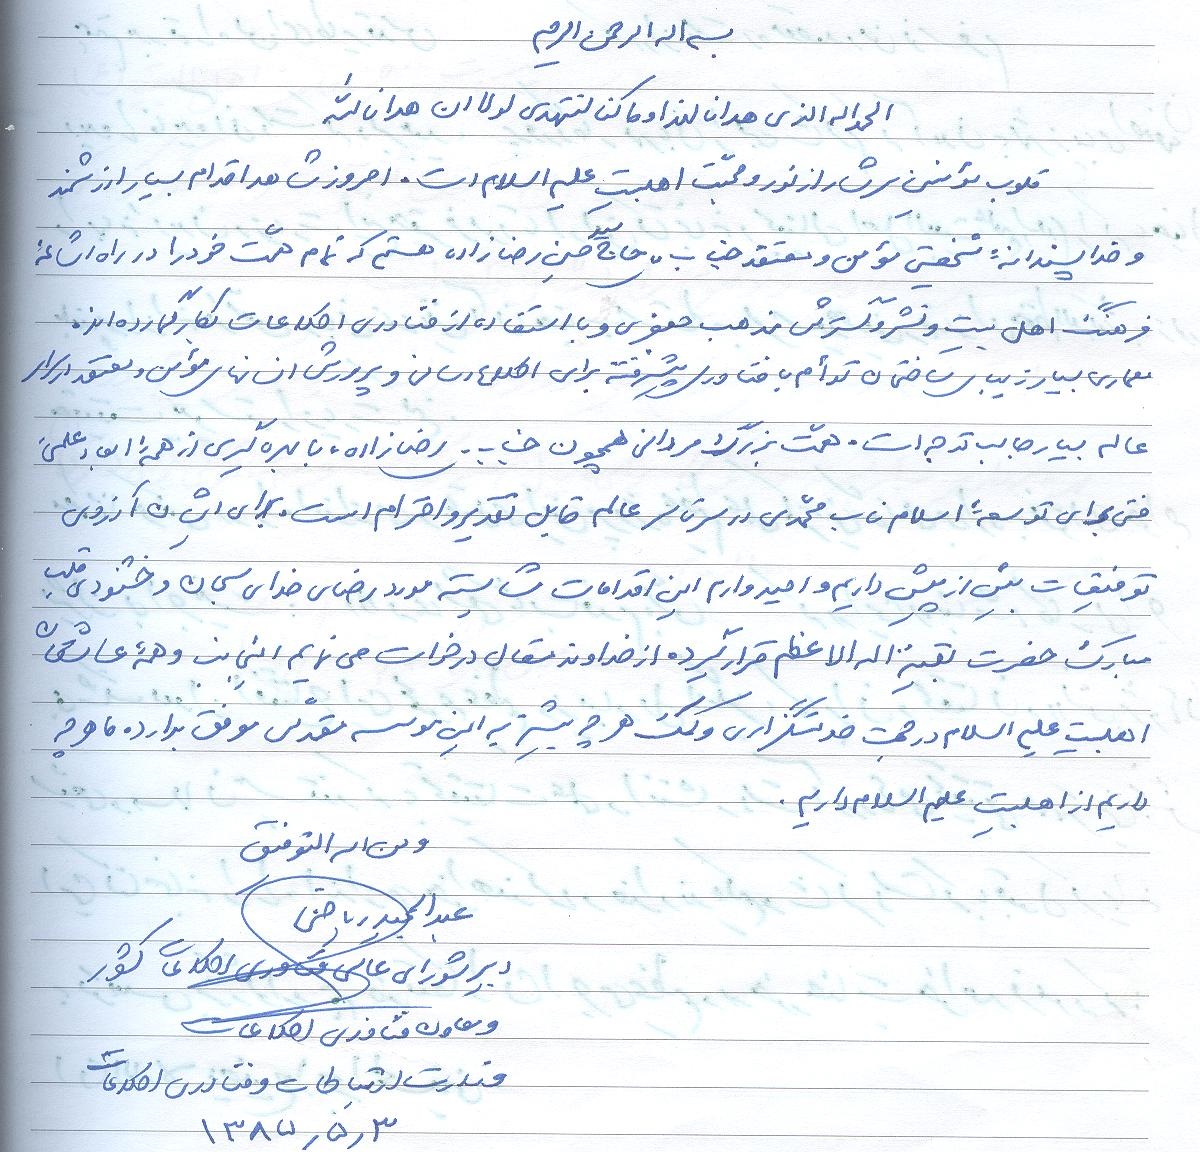 بسم اله الرحمن الرحیم
الحمداله الذی هدانا لهذا و ما کنا لنهتدی لولا ان هدانا الله
قلوب مؤمنین سرشار از نور و محبّت اهلبیت علیهم السلام است. امروز شاهد اقدام بسیار ارزشمند
و خداپسندانهٔ شخصیتی مؤمن و معتقد جناب حاج سید حسن رضازاده هستم که تمام همّت خود را در راه اشاعهٔ
فرهنگ اهل بیت و نشر و گسترش مذهب جعفری و با استفاده از فنّاوری اطلاعات بکار گمارده اند.
معماری بسیار زیبای ساختمان توأم با فنّاوری پیشرفته برای اطلاع رسانی و پرورش انسانهای مؤمن و معتقد در سراسر
عالم بسیار جالب توجه است. همّت بزرگ مردانی همچون جناب رضازاده، با بهره گیری از همهٔ ابعاد علمی
فنی برای توسعهٔ اسلام ناب محمّدی در سرتاسر عالم قابل تقدیر و احترام است. برای ایشان آرزوی
توفیقات بیش از پیش داریم و امیدوارم این اقدامات شایسته مورد رضای خدای سبحان و خشنودی قلب
مبارک حضرت بقیة اله الاعظم قرار گیرد. از خداوند متعال درخواست می نماییم اینجانب و همهٔ عاشقان
اهلبیت علیهم السلام در جهت خدمتگزاری و کمک هر چه بیشتر به این موسسه مقدّس موفق بدارد. ما هر چه
داریم از اهلبیت علیهم السلام داریم.
و من اله التوفیق
عبدالمجید ریاضی
دبیر شورای عالی فناوری اطلاعات کشور
و معاون فنّاوری اطلاعات
وزارت ارتباطات و فنّاوری اطلاعات
۳ر۵ر۱۳۸۷